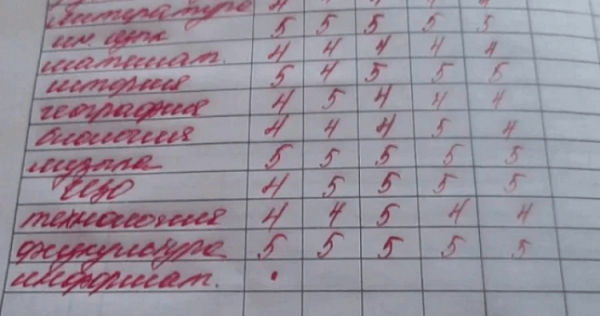 литература 4 4 4 4 4
ин. язык 5 5 5 5 5
математ. 4 4 4 4 4
история 5 4 5 5 5
география 4 5 4 4 4
биология 4 4 4 5 4
музыка 5 5 5 5 5
ИЗО 4 5 5 5 5
технология 4 4 5 4 4
физкультура 5 5 5 5 5
информат.